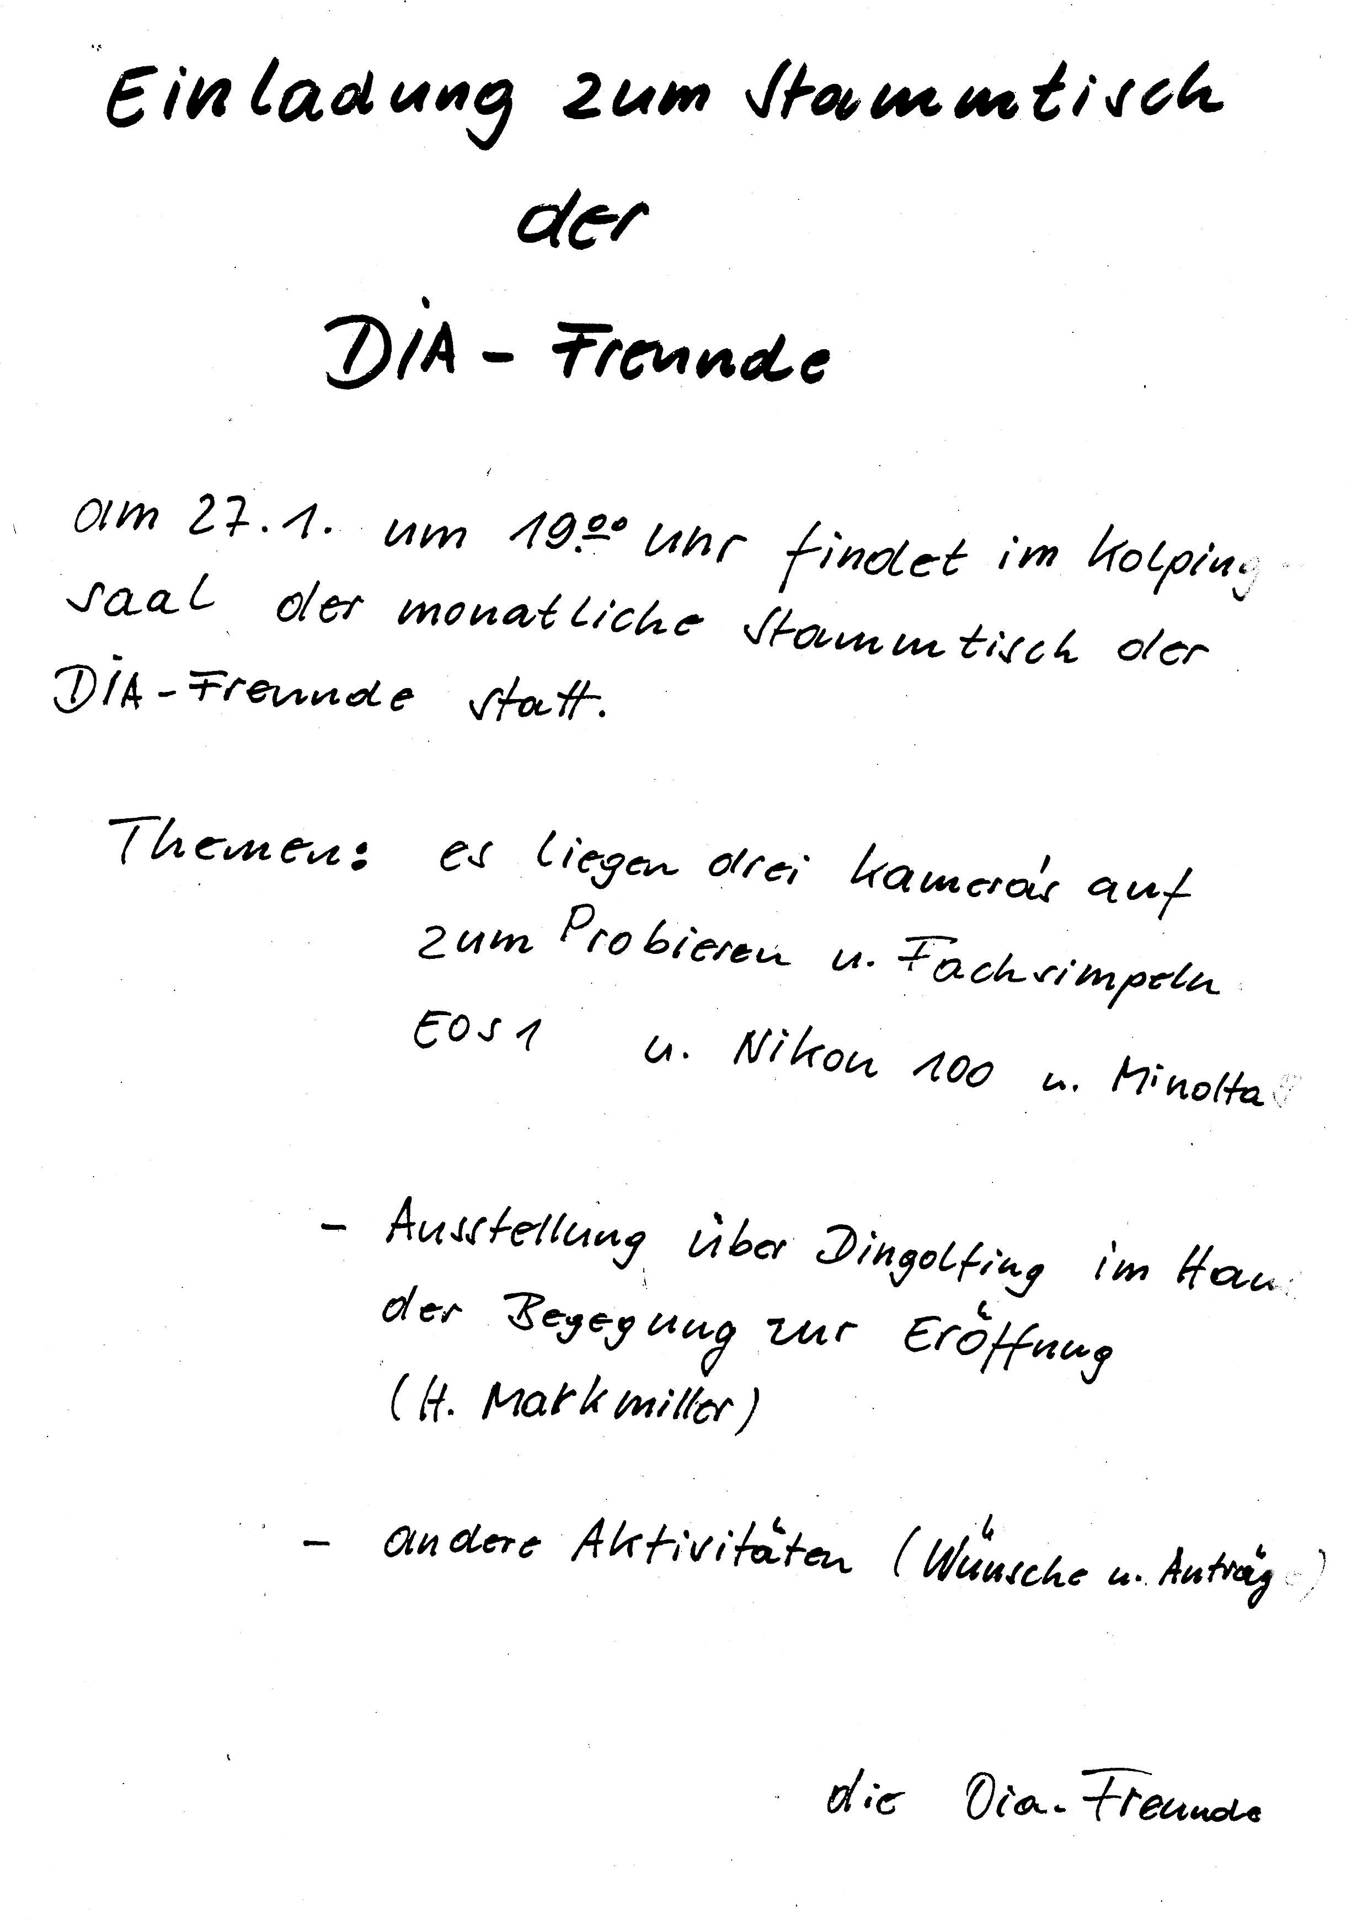 Einladung zum Stammtisch
der
DiA - Freunde
am 27.1. um 19.00 Uhr findet im Kolping-
saal der monatliche Stammtisch der
DiA-Freunde statt.
Themen: es liegen drei Kamera's auf
zum Probieren u. Fachsimpeln
EOS 1 u. Nikon 100 u. Minolta
- Ausstellung über Dingolfing im Haus
der Begegnung zur Eröffnung
(H. Markmiller)
- andere Aktivitäten (Wünsche u. Anträge)
die Dia-Freunde